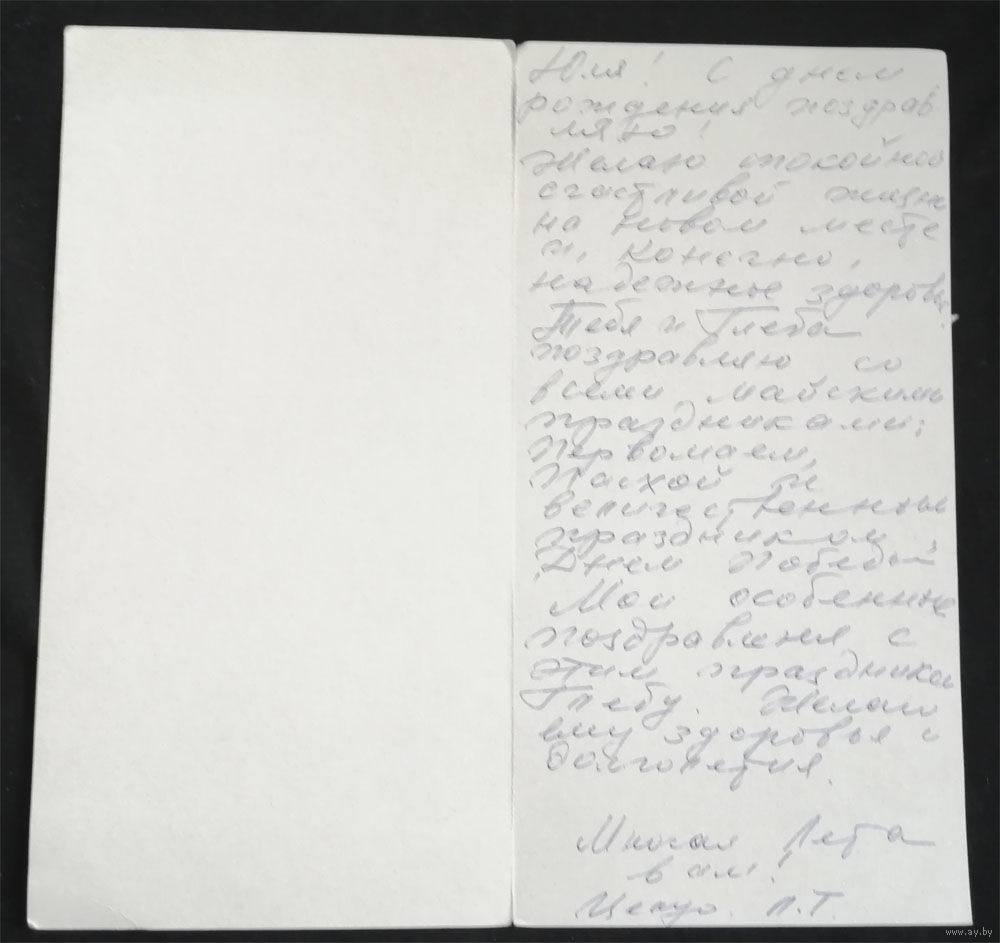 Юля! С днем
рождения поздрав
ляю!
Желаю спокойной
счастливой жизни
на новом месте
и, конечно,
надежное здоровье.
Тебя и Глеба
поздравляю со
всеми майскими
праздниками:
Первомаем,
Пасхой и
величественным
праздником,
Днем Победы
Мои особенные
поздравления с
этим праздником
Глебу. Желаю
ему здоровья и
долголетия.
Многая Лета
вам!
Целую. Л.Т.
www.ay.by